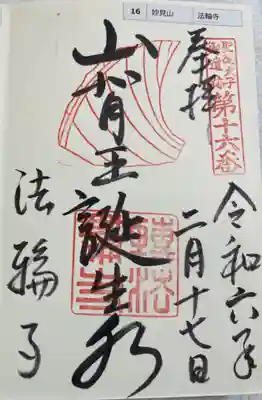 16 妙見山 法輪寺
奉拝
聖徳太子
御遺跡
第十六番
山背王誕生水
法輪寺
令和六年
二月十七日